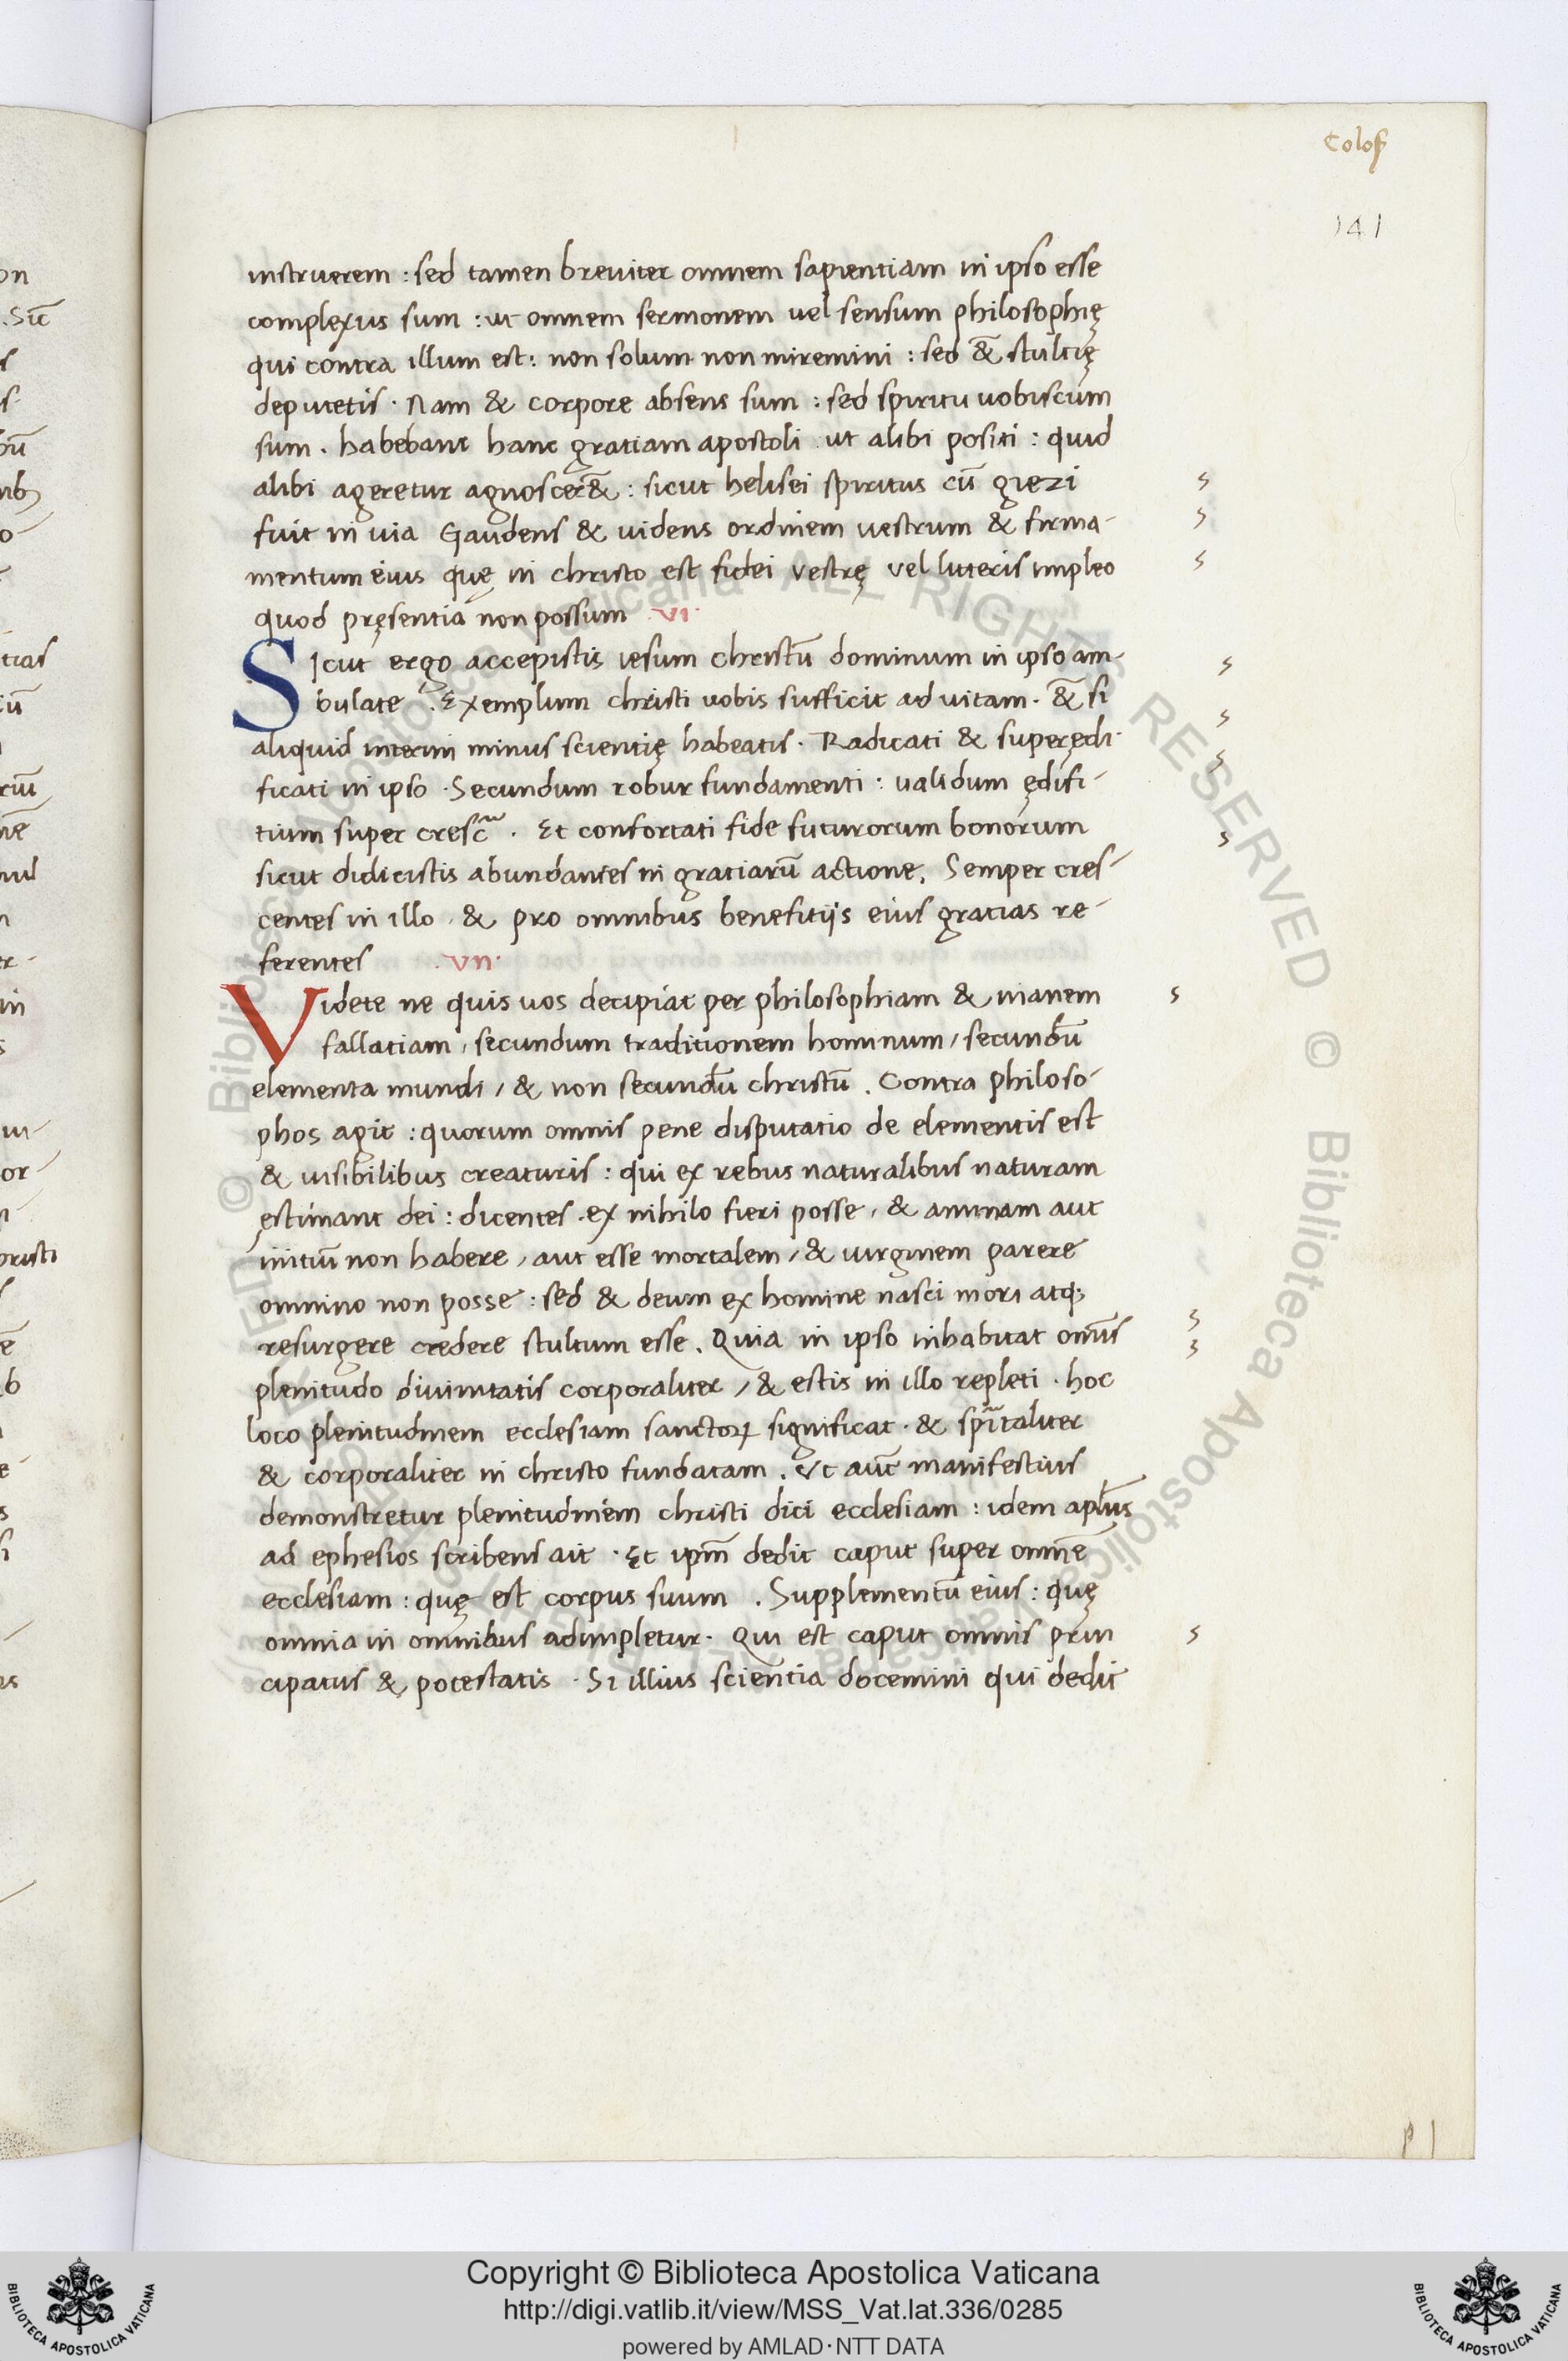 Colos
141
instruerem : sed tamen breuiter omnem sapientiam in ipso esse
complexus sum : ut omnem sermonem uel sensum philosophię
qui contra illum est : non solum non miremini : sed &̄ stultię
deputetis · Nam & corpore absens sum : sed spiritu uobiscum
sum . habebant hanc gratiam apostoli ut alibi positi : quid
alibi ageretur agnoscer&̄ : sicut helisei spiritus cū giezi
fuit in uia Gaudens & uidens ordinem uestrum & firma-
mentum eius quę in christo est fidei vestrę vel litteris impleo
quod pręsentia non possum .VI.
Sicut ergo accepistis iesum christū dominum in ipso am-
bulate . Exemplum christi uobis sufficit ad uitam . &̄ si
aliquid interim minus scientię habeatis . Radicati & superędi-
ficati in ipso . Secundum robur fundamenti : ualidum ędifi-
tium super cresc̃ . Et confortati fide futurorum bonorum
sicut didicistis abundantes in gratiarū actione . Semper cres-
centes in illo . & pro omnibus benefitijs eius gratias re-
ferentes .VII.
Videte ne quis uos decipiat per philosophiam & inanem
fallatiam , secundum traditionem hominum / secundū
elementa mundi / & non secundū christū . Contra philoso-
phos agit : quorum omnis pene disputatio de elementis est
& uisibilibus creaturis : qui ex rebus naturalibus naturam
ęstimant dei : dicentes . ex nihilo fieri posse , & animam aut
initiū non habere , aut esse mortalem / & uirginem parere
omnino non posse : sed & deum ex homine nasci mori atq;
resurgere credere stultum esse . Quia in ipso inhabitat om̄is
plenitudo diuinitatis corporaliter / & estis in illo repleti . hoc
loco plenitudinem ecclesiam sanctoꝝ significat . & spi̅taliter
& corporaliter in christo fundatam . Ut aut̄ manifestius
demonstretur plenitudinem christi dici ecclesiam : idem apl̄us
ad ephesios scribens ait . Et ipm̄ dedit caput super omnē
ecclesiam : quę est corpus suum . Supplementū eius : quę
omnia in omnibus adimpletur . Qui est caput omnis prin
cipatus & potestatis . Si illius scientia docemini qui dedit
p 1
Copyright © Biblioteca Apostolica Vaticana
http://digi.vatlib.it/view/MSS_Vat.lat.336/0285
powered by AMLAD·NTT DATA